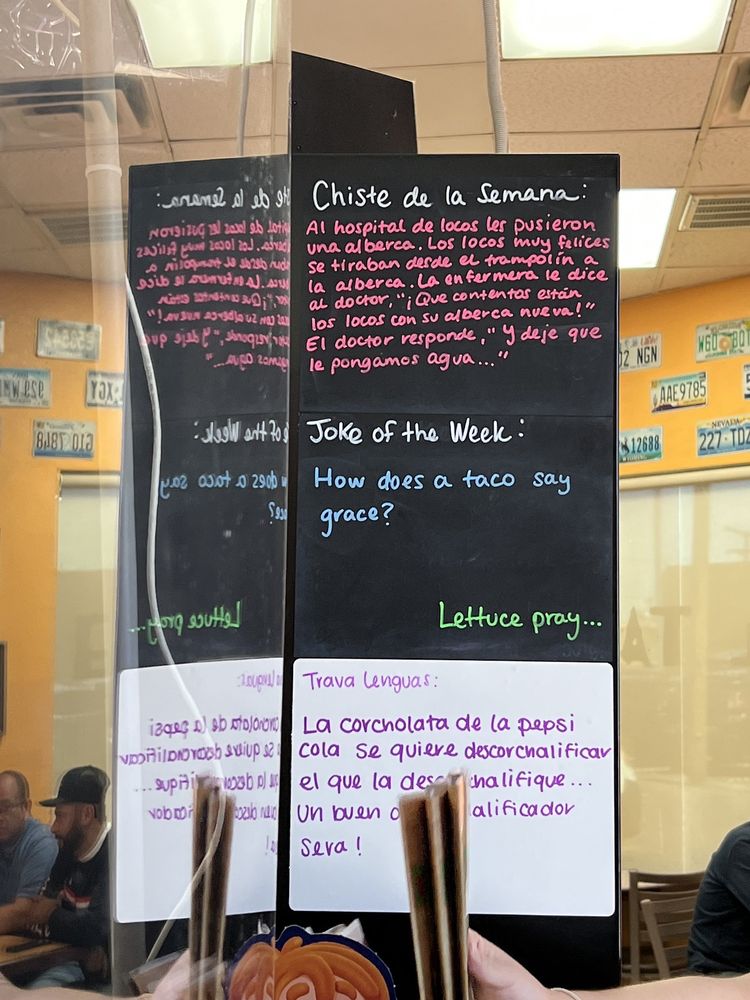 Chiste de la Semana:
Al hospital de locos les pusieron
una alberca. Los locos muy felices
se tiraban desde el trampolín a
la alberca. La enfermera le dice
al doctor, "¡Que contentos están
los locos con su alberca nueva!"
El doctor responde, "Y deje que
le pongamos agua..."
Joke of the Week:
How does a taco say
grace?
Lettuce pray...
Trava Lenguas:
La corcholata de la pepsi
cola se quiere descorchalificar
el que la descorchalifique...
Un buen alificador
sera!
NGN
AAE9785
12688
NEVADA
227·TDZ